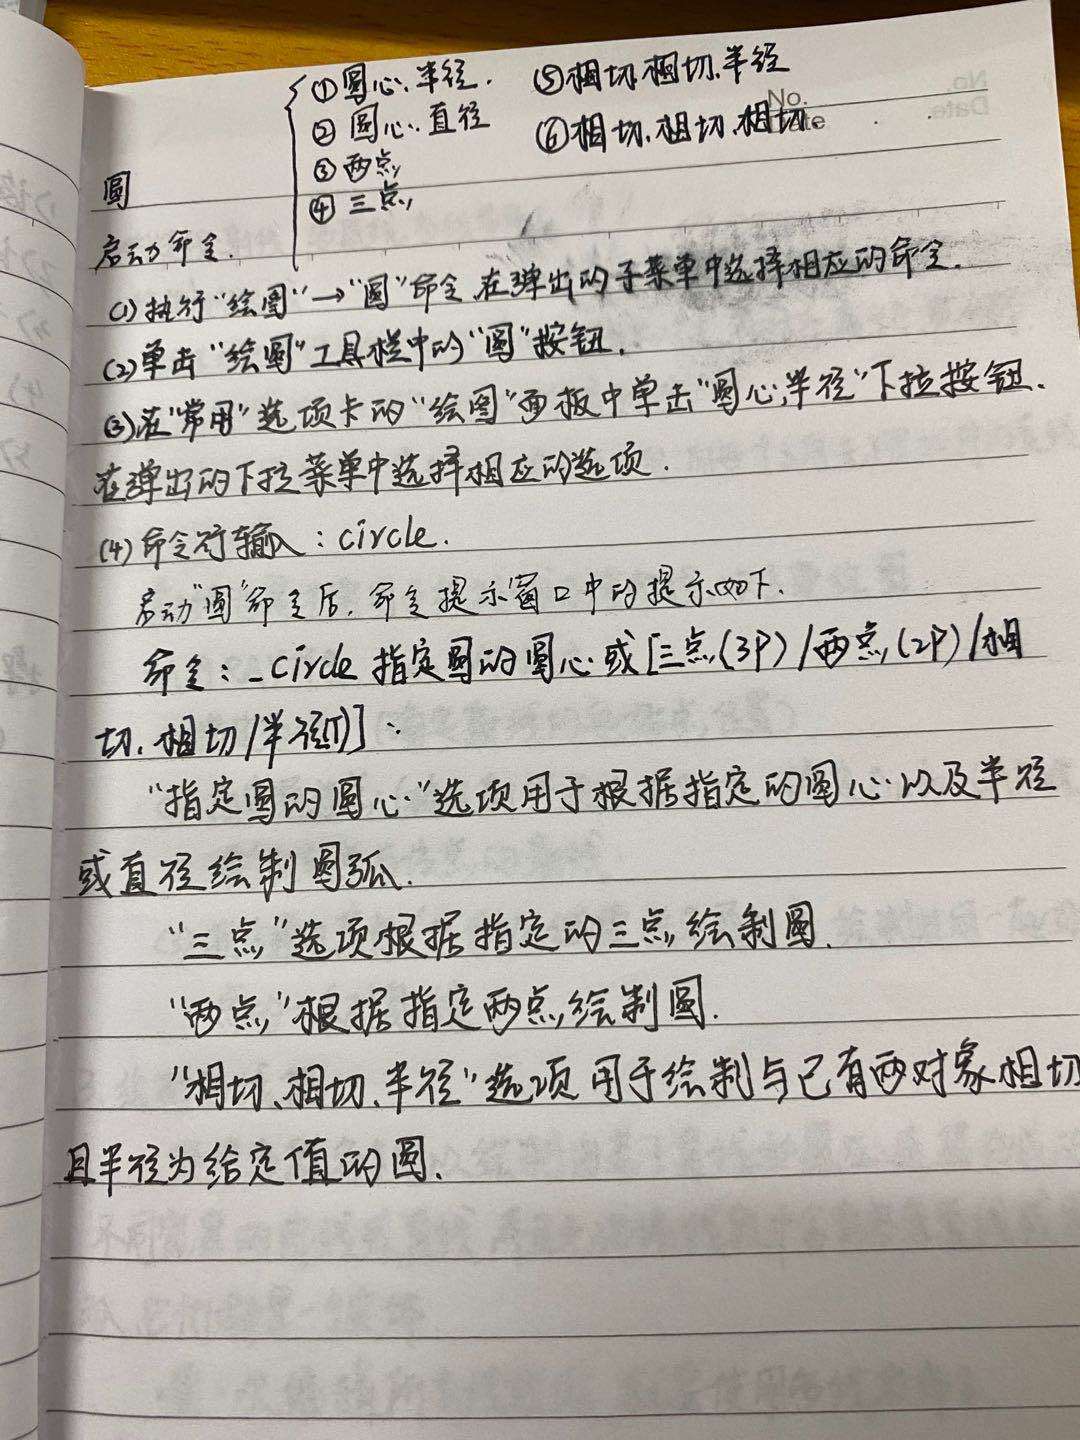 ① 圆心、半径. ⑤ 相切.相切.半径
② 圆心、直径 ⑥ 相切.相切.相切.
No.
Date
③ 两点
圆
④ 三点
启动命令.
(1) 执行"绘图"→"圆"命令,在弹出的子菜单中选择相应的命令.
(2) 单击"绘图"工具栏中的"圆"按钮.
(3) 在"常用"选项卡的"绘图"面板中单击"圆心,半径"下拉按钮.
在弹出的下拉菜单中选择相应的选项.
(4) 命令行输入:circle.
启动"圆"命令后,命令提示窗口中的提示如下.
命令:_circle 指定圆的圆心或[三点(3P)/两点(2P)/相
切、相切/半径(T)]:
"指定圆的圆心"选项用于根据指定的圆心以及半径
或直径绘制圆弧.
"三点"选项根据指定的三点绘制圆.
"两点"根据指定两点绘制圆.
"相切、相切、半径"选项用于绘制与已有两对象相切
且半径为给定值的圆.